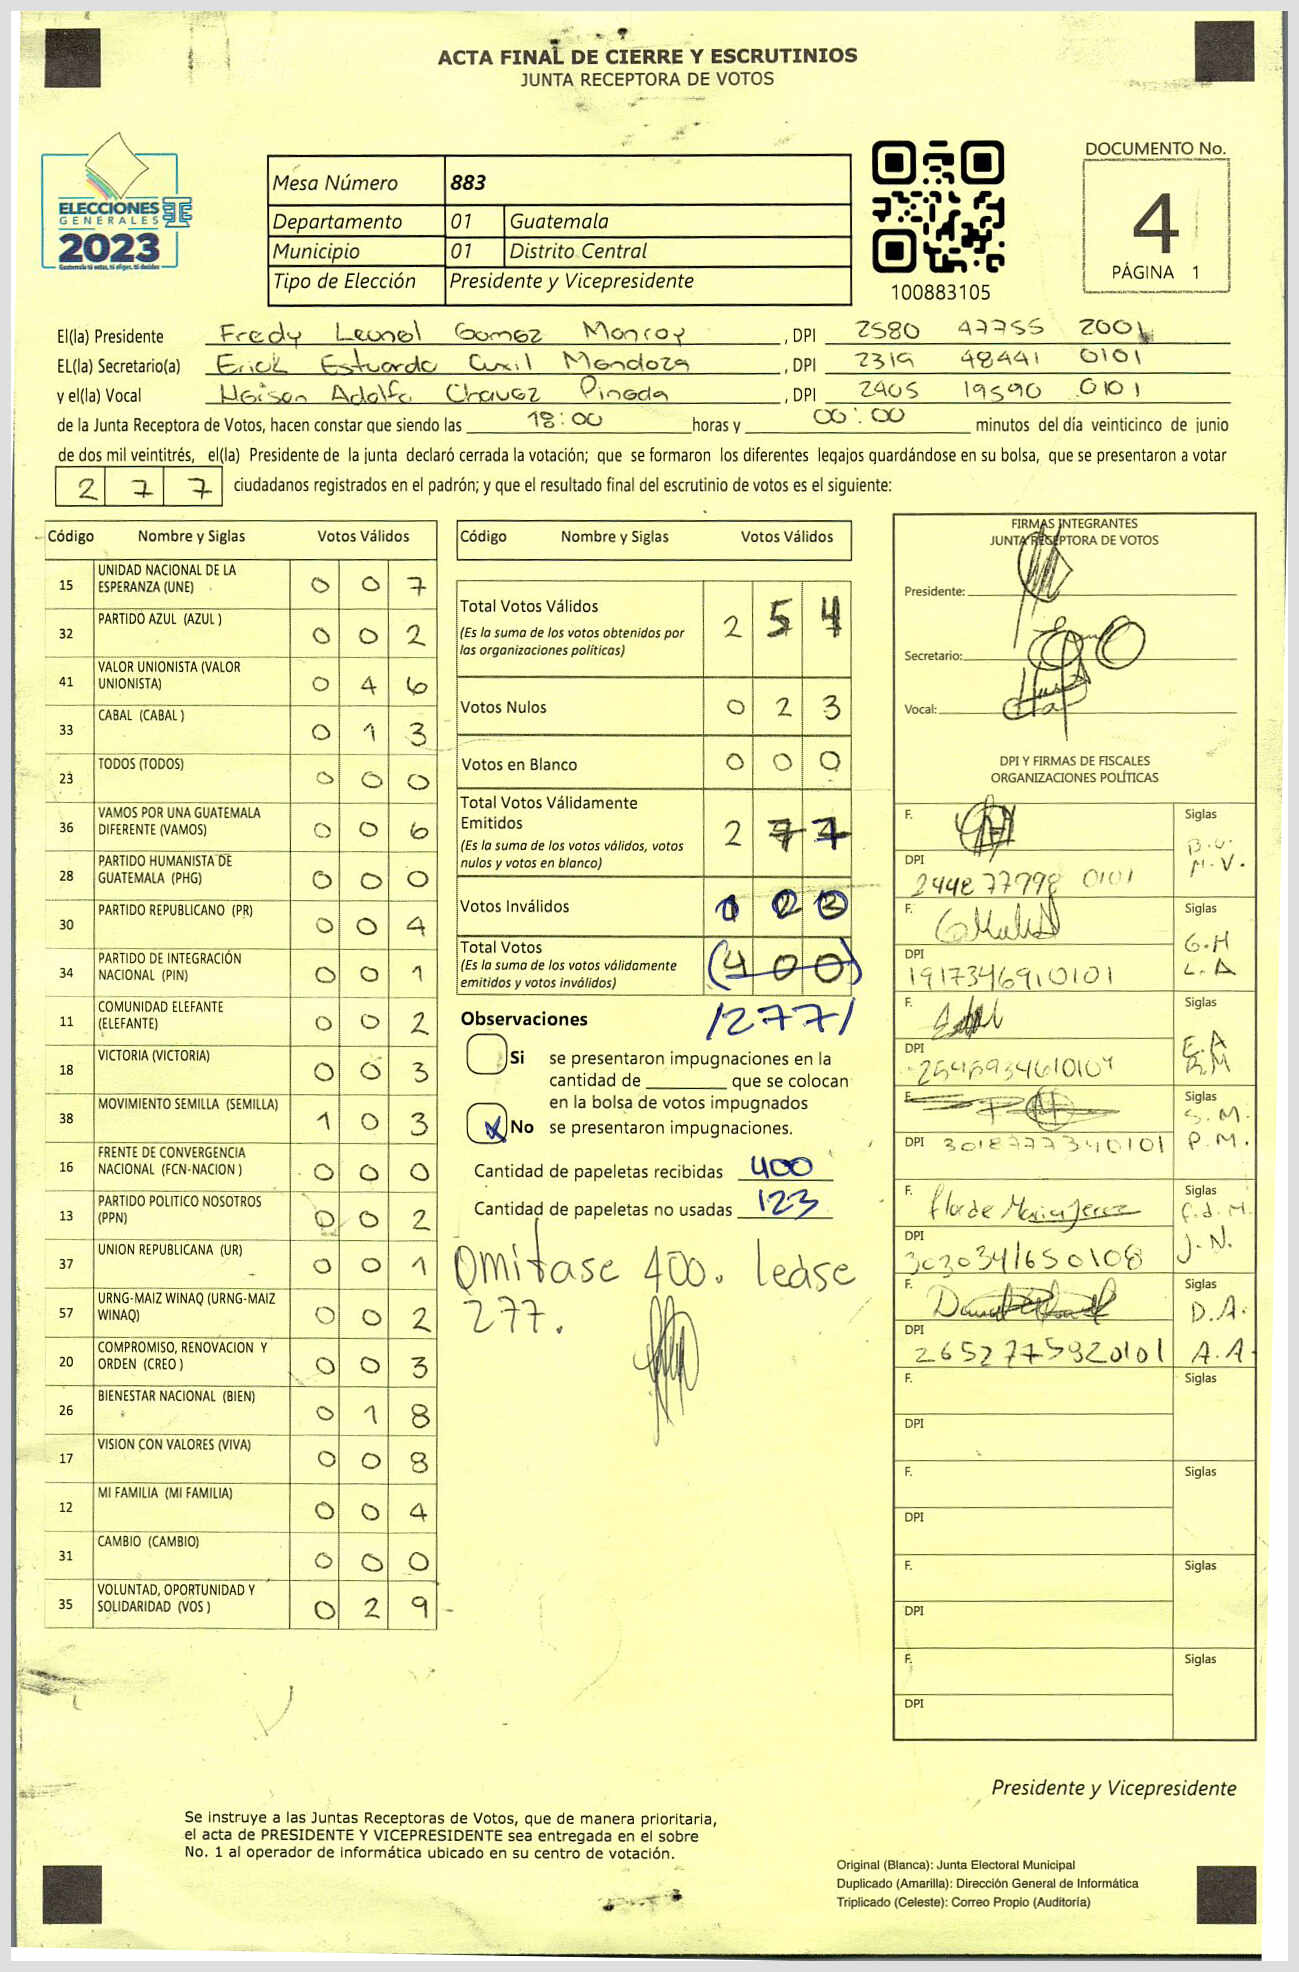 ACTA FINAL DE CIERRE Y ESCRUTINIOS
JUNTA RECEPTORA DE VOTOS
ELECCIONES
GENERALES
2023
Guatemala tú votas, tú eliges, tú decides
TE
Mesa Número 883
Departamento 01 Guatemala
Municipio 01 Distrito Central
Tipo de Elección Presidente y Vicepresidente
100883105
DOCUMENTO No.
4
PÁGINA 1
El(la) Presidente Fredy Leonel Gomez Monroy, DPI 2580 47755 2001
EL(la) Secretario(a) Erick Estuardo Cuxil Mendoza, DPI 2319 48441 0101
y el(la) Vocal Adolfo Chavez Pineda, DPI 2405 19590 0101
de la Junta Receptora de Votos, hacen constar que siendo las 18:00 horas y 00:00 minutos del día veinticinco de junio
de dos mil veintitrés, el(la) Presidente de la junta declaró cerrada la votación; que se formaron los diferentes legajos guardándose en su bolsa, que se presentaron a votar
277 ciudadanos registrados en el padrón; y que el resultado final del escrutinio de votos es el siguiente:
Código Nombre y Siglas Votos Válidos
15 UNIDAD NACIONAL DE LA ESPERANZA (UNE) 0 0 7
32 PARTIDO AZUL (AZUL ) 0 0 2
41 VALOR UNIONISTA (VALOR UNIONISTA) 0 4 6
33 CABAL (CABAL ) 0 1 3
23 TODOS (TODOS) 0 0 0
36 VAMOS POR UNA GUATEMALA DIFERENTE (VAMOS) 0 0 6
28 PARTIDO HUMANISTA DE GUATEMALA (PHG) 0 0 0
30 PARTIDO REPUBLICANO (PR) 0 0 4
34 PARTIDO DE INTEGRACIÓN NACIONAL (PIN) 0 0 1
11 COMUNIDAD ELEFANTE (ELEFANTE) 0 0 2
18 VICTORIA (VICTORIA) 0 0 3
38 MOVIMIENTO SEMILLA (SEMILLA) 1 0 3
16 FRENTE DE CONVERGENCIA NACIONAL (FCN-NACION ) 0 0 0
13 PARTIDO POLITICO NOSOTROS (PPN) 0 0 2
37 UNION REPUBLICANA (UR) 0 0 1
57 URNG-MAIZ WINAQ (URNG-MAIZ WINAQ) 0 0 2
20 COMPROMISO, RENOVACION Y ORDEN (CREO ) 0 0 3
26 BIENESTAR NACIONAL (BIEN) 0 1 8
17 VISION CON VALORES (VIVA) 0 0 8
12 MI FAMILIA (MI FAMILIA) 0 0 4
31 CAMBIO (CAMBIO) 0 0 0
35 VOLUNTAD, OPORTUNIDAD Y SOLIDARIDAD (VOS ) 0 2 9
Código Nombre y Siglas Votos Válidos
Total Votos Válidos 2 5 4
(Es la suma de los votos obtenidos por
las organizaciones políticas)
Votos Nulos 0 2 3
Votos en Blanco 0 0 0
Total Votos Válidamente
Emitidos 2 7 7
(Es la suma de los votos válidos, votos
nulos y votos en blanco)
Votos Inválidos
Total Votos (400)
(Es la suma de los votos válidamente
emitidos y votos inválidos)
/277/
Observaciones
Si se presentaron impugnaciones en la
cantidad de ________ que se colocan
en la bolsa de votos impugnados
X No se presentaron impugnaciones.
Cantidad de papeletas recibidas 400
Cantidad de papeletas no usadas 123
Omitase 400. lease
277.
FIRMAS INTEGRANTES
JUNTA RECEPTORA DE VOTOS
Presidente:
Secretario:
Vocal:
DPI Y FIRMAS DE FISCALES
ORGANIZACIONES POLÍTICAS
F. Siglas
M.V.
DPI 0101
F. Siglas
G.H
L.A
DPI 1917346910101
F. Siglas
E.A
R.M
DPI
F. Siglas
S.M.
P.M.
DPI 3018777340101
F. Flor de Maria Jerez Siglas
F.d.M.
J.N.
DPI 3030341650108
F. Siglas
D.A.
A.A.
DPI 2652775920101
F. Siglas
DPI
F. Siglas
DPI
F. Siglas
DPI
F. Siglas
DPI
Presidente y Vicepresidente
Se instruye a las Juntas Receptoras de Votos, que de manera prioritaria,
el acta de PRESIDENTE Y VICEPRESIDENTE sea entregada en el sobre
No. 1 al operador de informática ubicado en su centro de votación.
Original (Blanca): Junta Electoral Municipal
Duplicado (Amarilla): Dirección General de Informática
Triplicado (Celeste): Correo Propio (Auditoría)